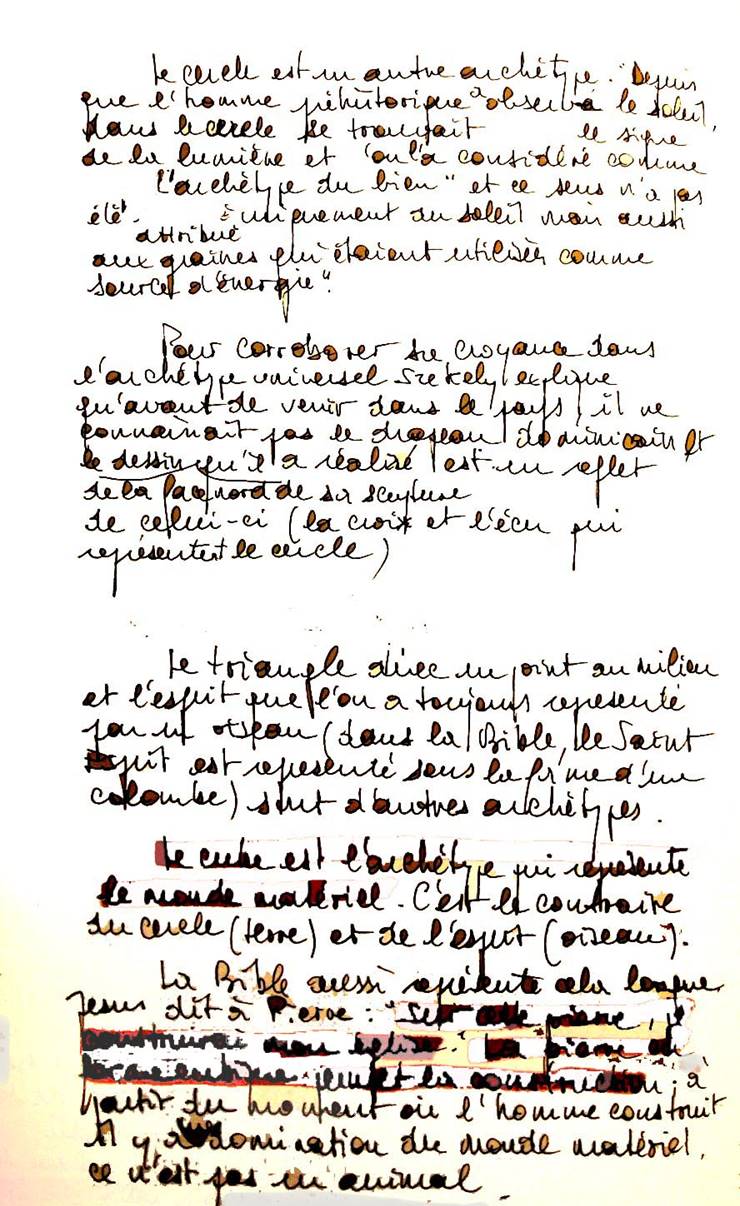 Le cercle est un autre archétype. "Depuis
que l'homme préhistorique a observé le soleil,
dans le cercle se trouvait le signe
de la lumière et on l'a considéré comme
l'archétype du bien" et ce sens n'a pas
été attribué uniquement au soleil mais aussi
aux graines qui étaient utilisées comme
sources d'énergie".
Pour corroborer sa croyance dans
l'archétype universel Szekely explique
qu'avant de venir dans le pays, il ne
connaissait pas le drapeau dominicain et
le dessin qu'il a réalisé est un reflet
de la face nord de sa sculpture
de celui-ci (la croix et l'écu qui
représentent le cercle)
Le triangle avec un point au milieu
et l'esprit que l'on a toujours représenté
par un oiseau (dans la Bible, le Saint
Esprit est représenté sous la forme d'une
colombe) sont d'autres archétypes.
Le cube est l'archétype qui représente
le monde matériel. C'est le contraire
du cercle (terre) et de l'esprit (oiseau).
La Bible aussi représente cela lorsque
Jesus dit à Pierre: "Sur cette pierre, je
construirai mon église." La pierre
permet la construction; à
partir du moment où l'homme construit
il y a domination du monde matériel,
ce n'est pas un animal